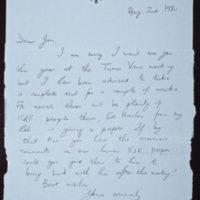 Aug. 2nd 1980
Dear Jon,
I am sorry I won't see you
this year at the Turns Vien meeting
but I have been advised to take
a complete rest for a couple of weeks.
As usual there will be plenty of
ICRF people there, Ed Harlow from my
lab is giving a paper. If by
that time you have the
comments on our 53K paper
could you give them to him to
bring back with him after the meeting?
Best wishes,
Yours sincerely